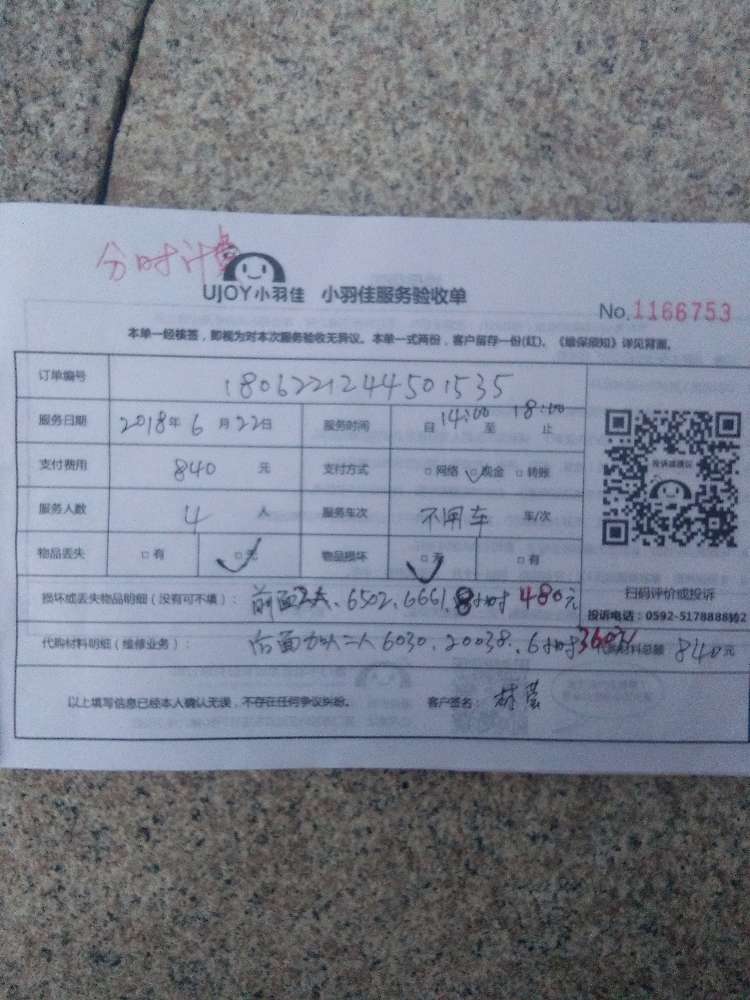 分时计费
UJOY小羽佳 小羽佳服务验收单
No.1166753
本单一经核签，即视为对本次服务验收无异议。本单一式两份，客户留存一份(红)。《维保须知》详见背面。
订单编号 1806221244501535
服务日期 2018年6月22日 服务时间 自14:00至18:00止
支付费用 840元 支付方式 □网络 ☑现金 □转账
投诉或建议
服务人数 4人 服务车次 不用车 车/次
物品丢失 □有 ☑无 物品损坏 ☑无 □有
扫码评价或投诉
损坏或丢失物品明细（没有可不填）：前面2人、6502、6661、8小时480元
投诉电话：0592-5178888转2
代购材料明细（维修业务）：后面加二人6030、20038、6小时360元 材料总额 840元
以上填写信息已经本人确认无误，不存在任何争议纠纷。 客户签名：